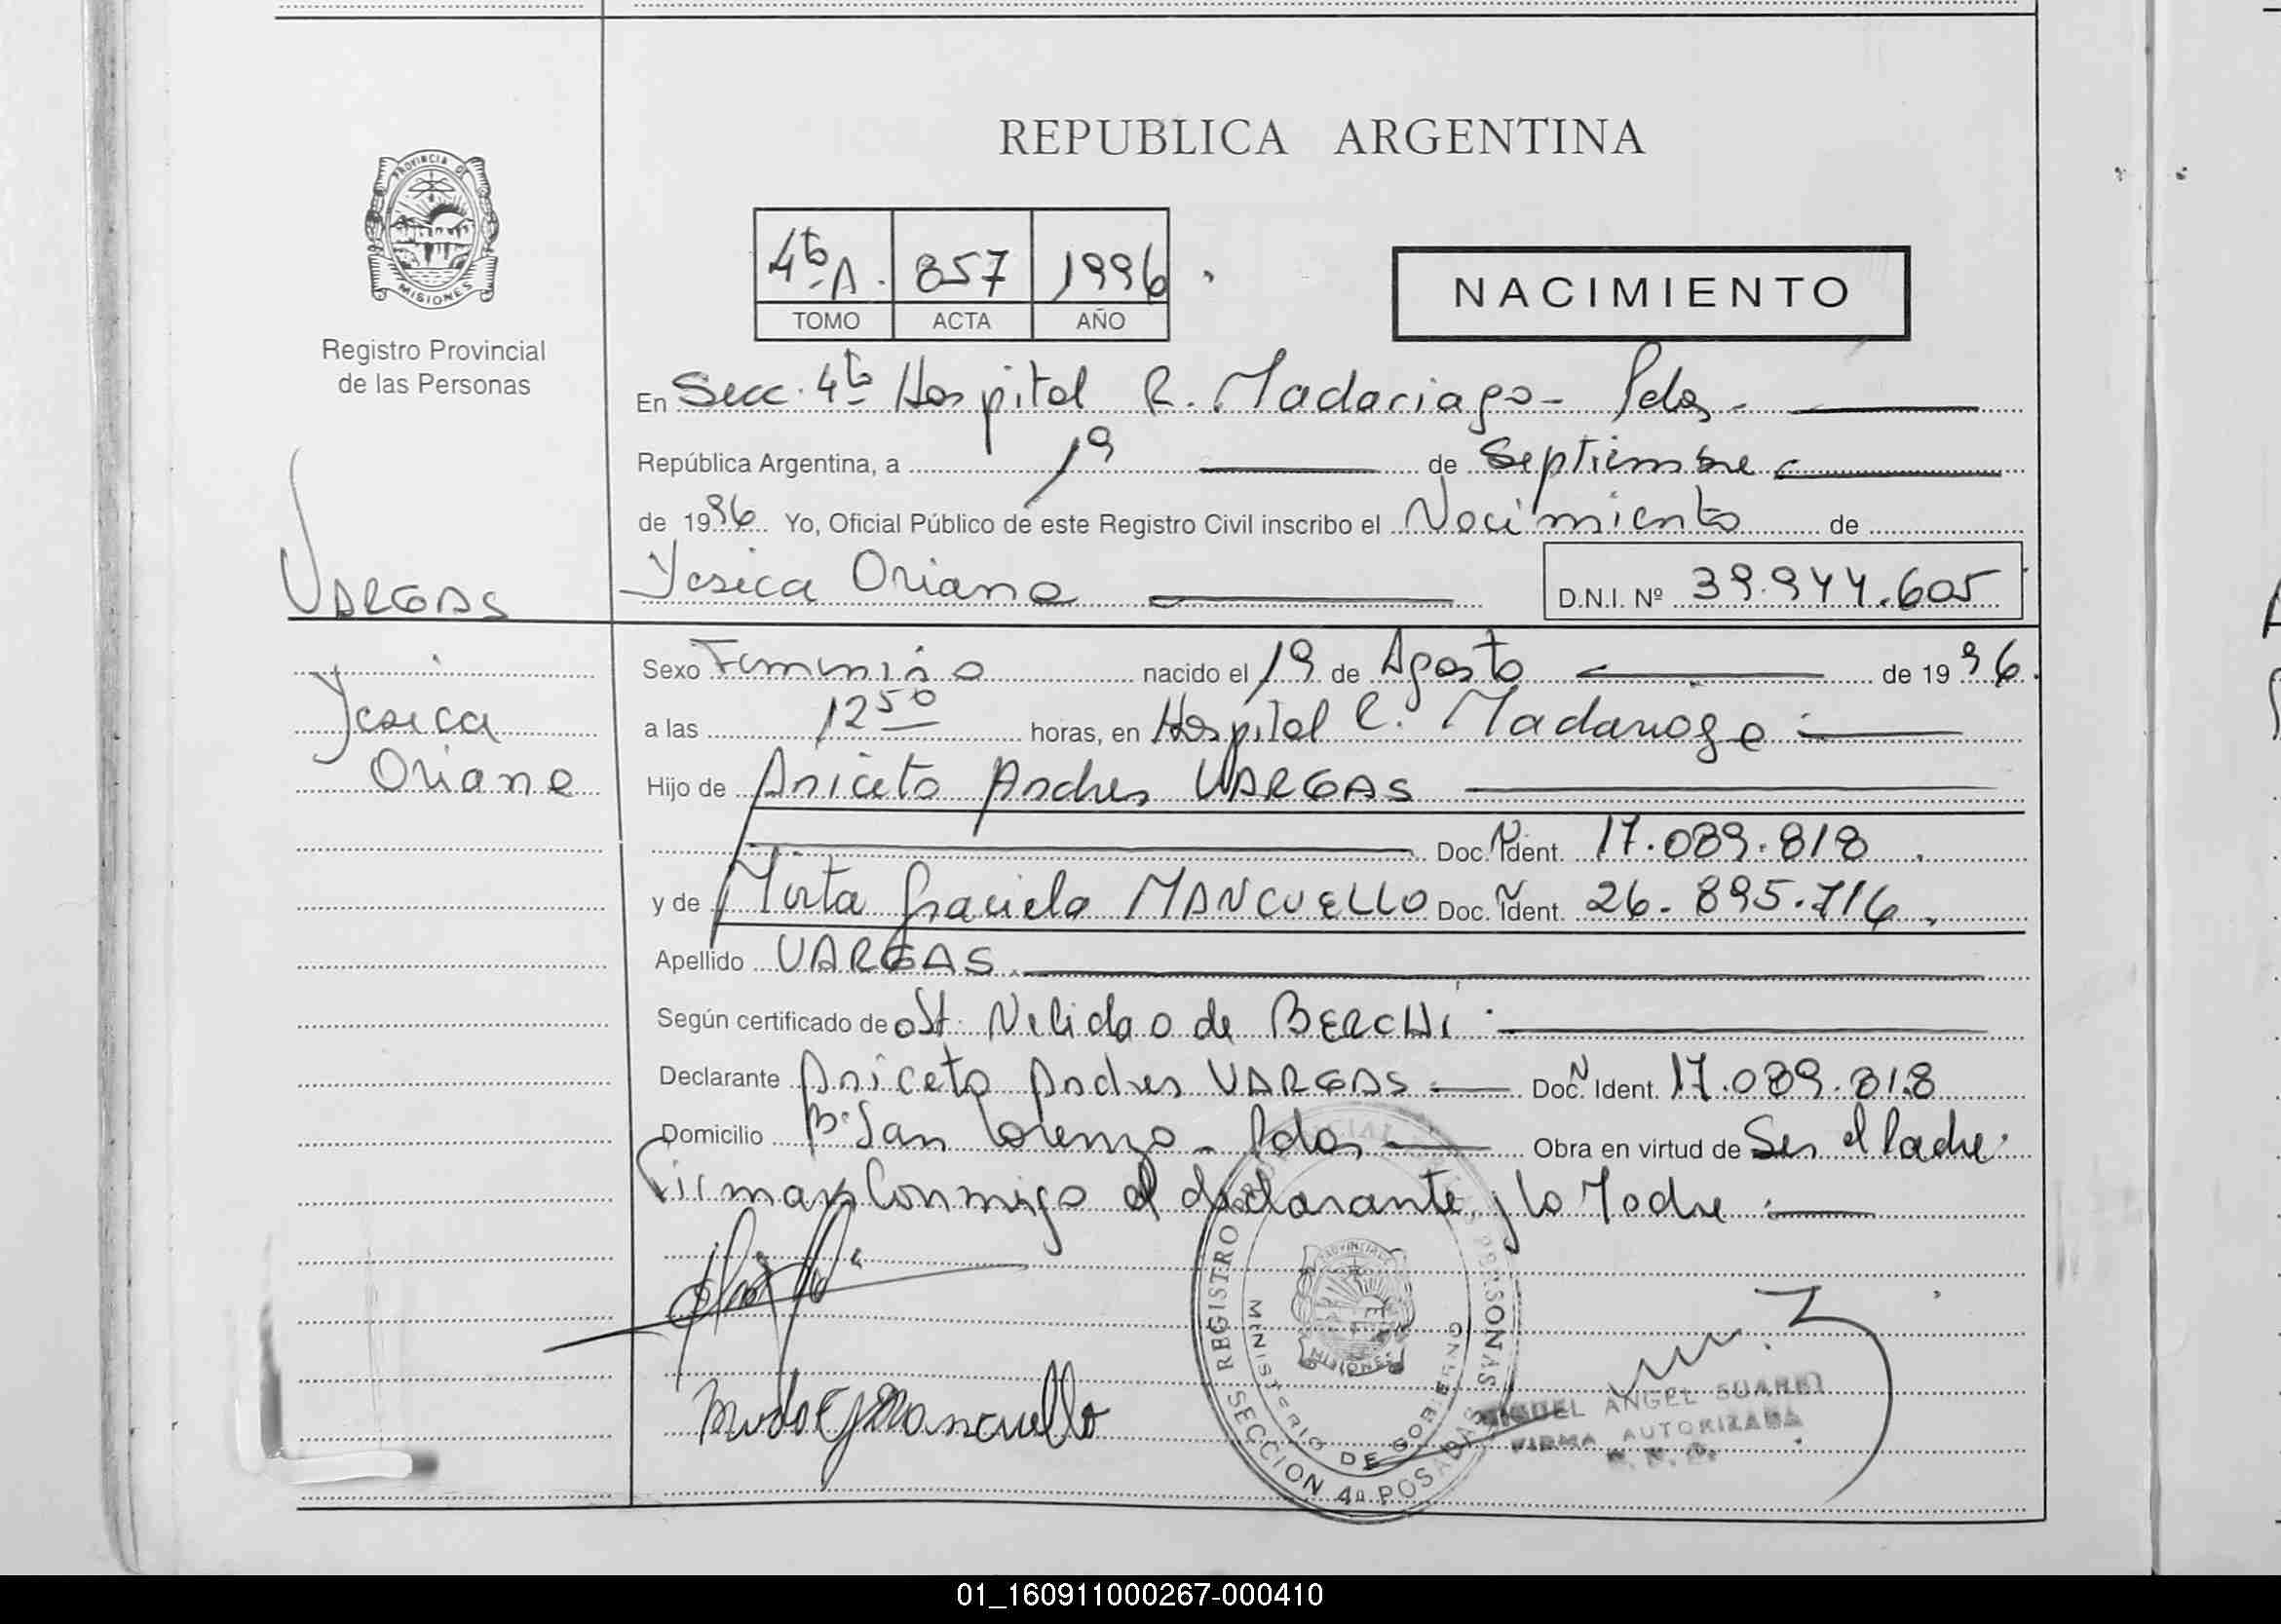 REPUBLICA ARGENTINA
PROVINCIA DE
MISIONES
Registro Provincial
de las Personas
4ta A. 857 1996
TOMO ACTA AÑO
NACIMIENTO
En Secc. 4ta Hospital R. Madariaga - Pdas -
República Argentina, a 19 de Septiembre
de 1996 Yo, Oficial Público de este Registro Civil inscribo el Nacimiento de
VARGAS
Yesica Oriana D.N.I. Nº 39.944.605
Sexo Femenino nacido el 19 de Agosto de 1996.
Yesica
a las 12 50 horas, en Hospital R. Madariaga
Oriana
Hijo de Aniceto Andres VARGAS
Doc. N Ident. 17.089.818
y de Mirta Graciela MANCUELLO Doc. N Ident. 26.895.716
Apellido VARGAS
Según certificado de Ost. Nelida O de BERCHI
Declarante Aniceto Andres VARGAS Doc. N Ident. 17.089.818
Domicilio Bº San Lorenzo - Pdas Obra en virtud de Ser el Padre
Firman Conmigo el declarante y la Madre
REGISTRO PROVINCIAL DE LAS PERSONAS
MINISTERIO DE GOBIERNO
MISIONES
SECCION 4a POSADAS
Mancuello
MIGUEL ANGEL SUAREZ
FIRMA AUTORIZADA
01_160911000267-000410